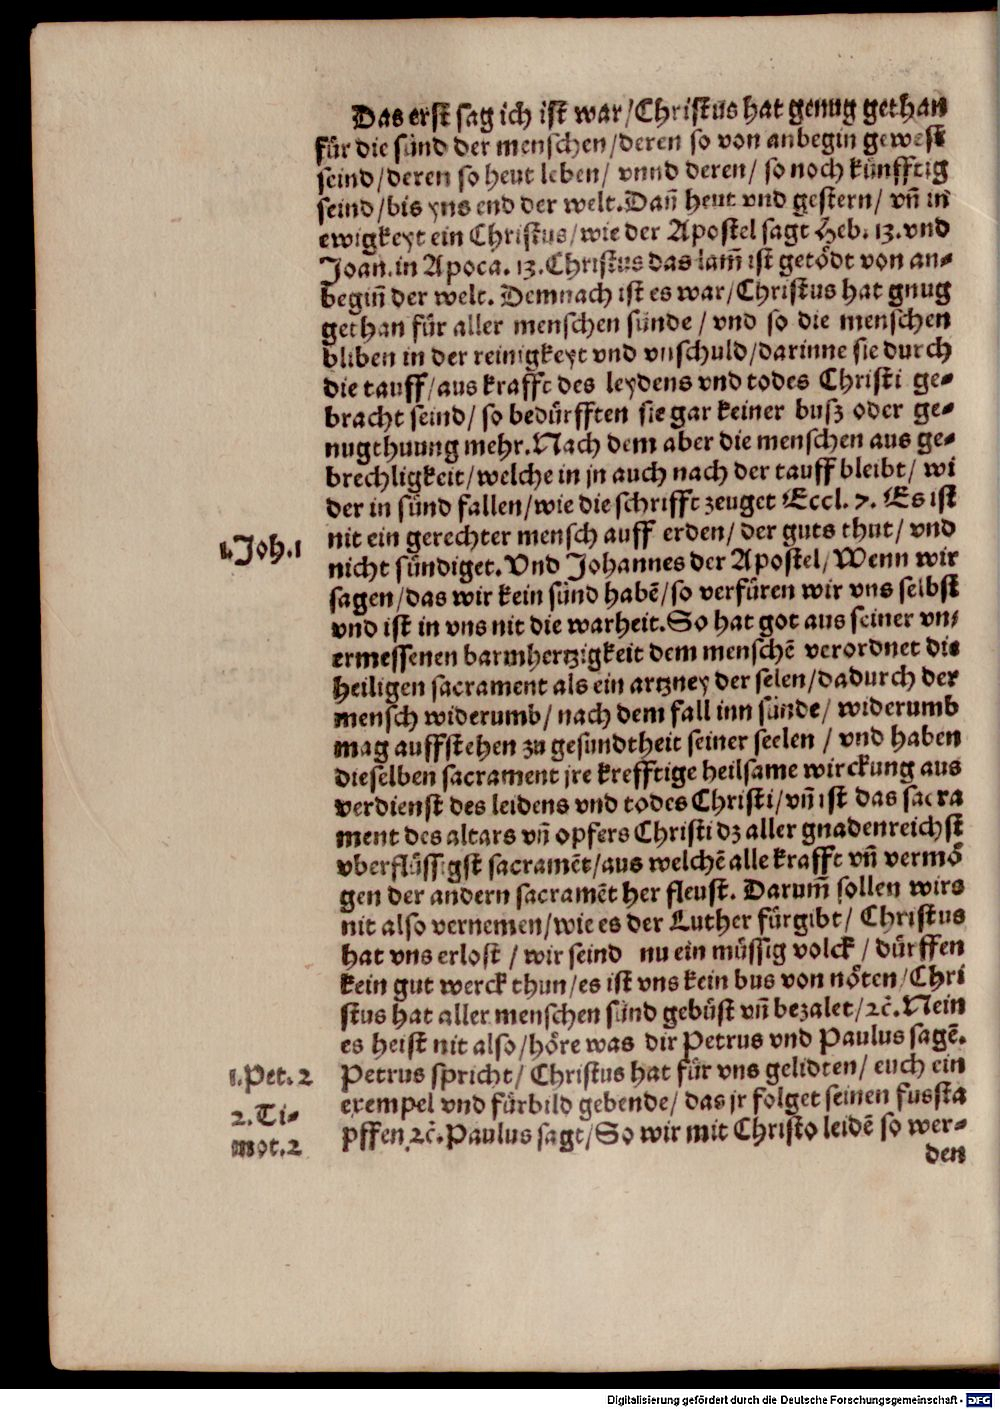 Das erst sag ich ist war/Christus hat genug gethan
für die sünd der menschen/deren so von anbegin gewest
seind/deren so heut leben/ vnnd deren/ so noch künfftig
seind/bis yns end der welt.Dañ heut vnd gestern/ vñ in
ewigkeyt ein Christus/wie der Apostel sagt Heb. 13.vnd
Joan.in Apoca. 13.Christus das lam̃ ist getödt von an-
begiñ der welt. Demnach ist es war/Christus hat gnug
gethan für aller menschen sünde/ vnd so die menschen
bliben in der reinigkeyt vnd vnschuld/darinne sie durch
die tauff/aus krafft des leydens vnd todes Christi ge-
bracht seind/ so bedürfften sie gar keiner busz oder ge-
nugthuung mehr.Nach dem aber die menschen aus ge-
brechligkeit/welche in jn auch nach der tauff bleibt/ wi
der in sünd fallen/wie die schrifft zeuget Eccl. 7. Es ist
1.Joh.1
nit ein gerechter mensch auff erden/ der guts thut/ vnd
nicht sündiget.Vnd Johannes der Apostel/Wenn wir
sagen/das wir kein sünd habẽ/so verfüren wir vns selbst
vnd ist in vns nit die warheit.So hat got aus seiner vn-
ermessenen barmhertzigkeit dem menschẽ verordnet die
heiligen sacrament als ein artzney der selen/dadurch der
mensch widerumb/ nach dem fall inn sünde/ widerumb
mag auffstehen zu gesundtheit seiner seelen / vnd haben
dieselben sacrament jre krefftige heilsame wirckung aus
verdienst des leidens vnd todes Christi/vñ ist das sacra
ment des altars vñ opfers Christi dz aller gnadenreichst
vberflüssigst sacramẽt/aus welchẽ alle krafft vñ vermö
gen der andern sacramẽt her fleust. Darum̃ sollen wirs
nit also vernemen/wie es der Luther fürgibt/ Christus
hat vns erlost / wir seind nu ein müssig volck / dürffen
kein gut werck thun/es ist vns kein bus von nöten/Chri
stus hat aller menschen sünd gebüst vñ bezalet/ꝛc̃.Nein
es heist nit also/höre was dir Petrus vnd Paulus sagẽ.
1.Pet.2
Petrus spricht/ Christus hat für vns gelidten/ euch ein
2.Ti-
exempel vnd fürbild gebende/ das jr folget seinen fussta
mot.2
pffen ꝛc̃.Paulus sagt/So wir mit Christo leidẽ so wer-
den
Digitalisierung gefördert durch die Deutsche Forschungsgemeinschaft - DFG